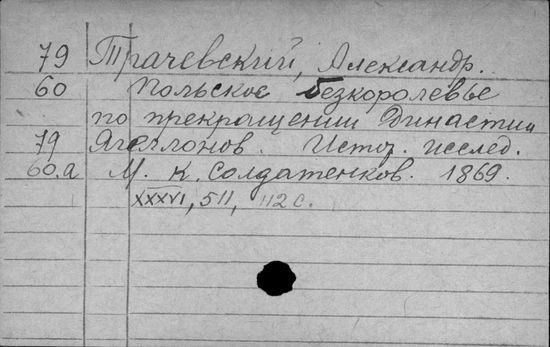 79 Трачевский, Александр.
60 Польское безкоролевье
по прекращении Династии
79 Ягеллонов. Истор. исслед.
60.а М. К. Солдатенков. 1869.
XXXVI, 511, 112 с.